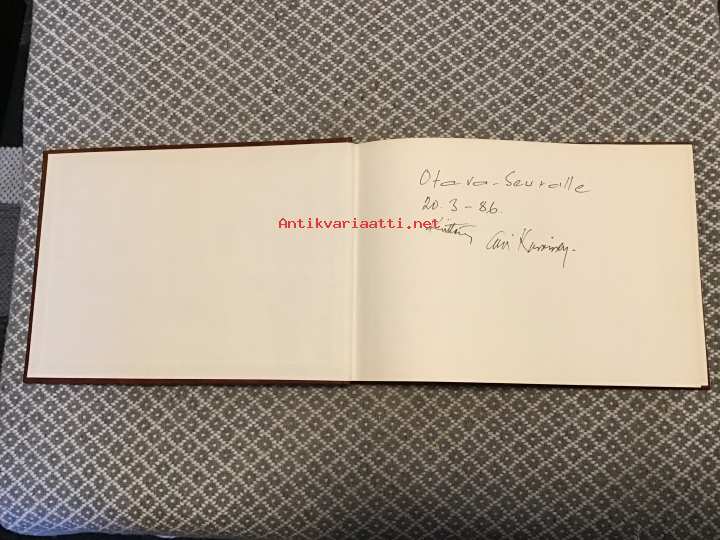 Otava-Seuralle
20.3-86.
Antikvariaatti.net
Kiittäen